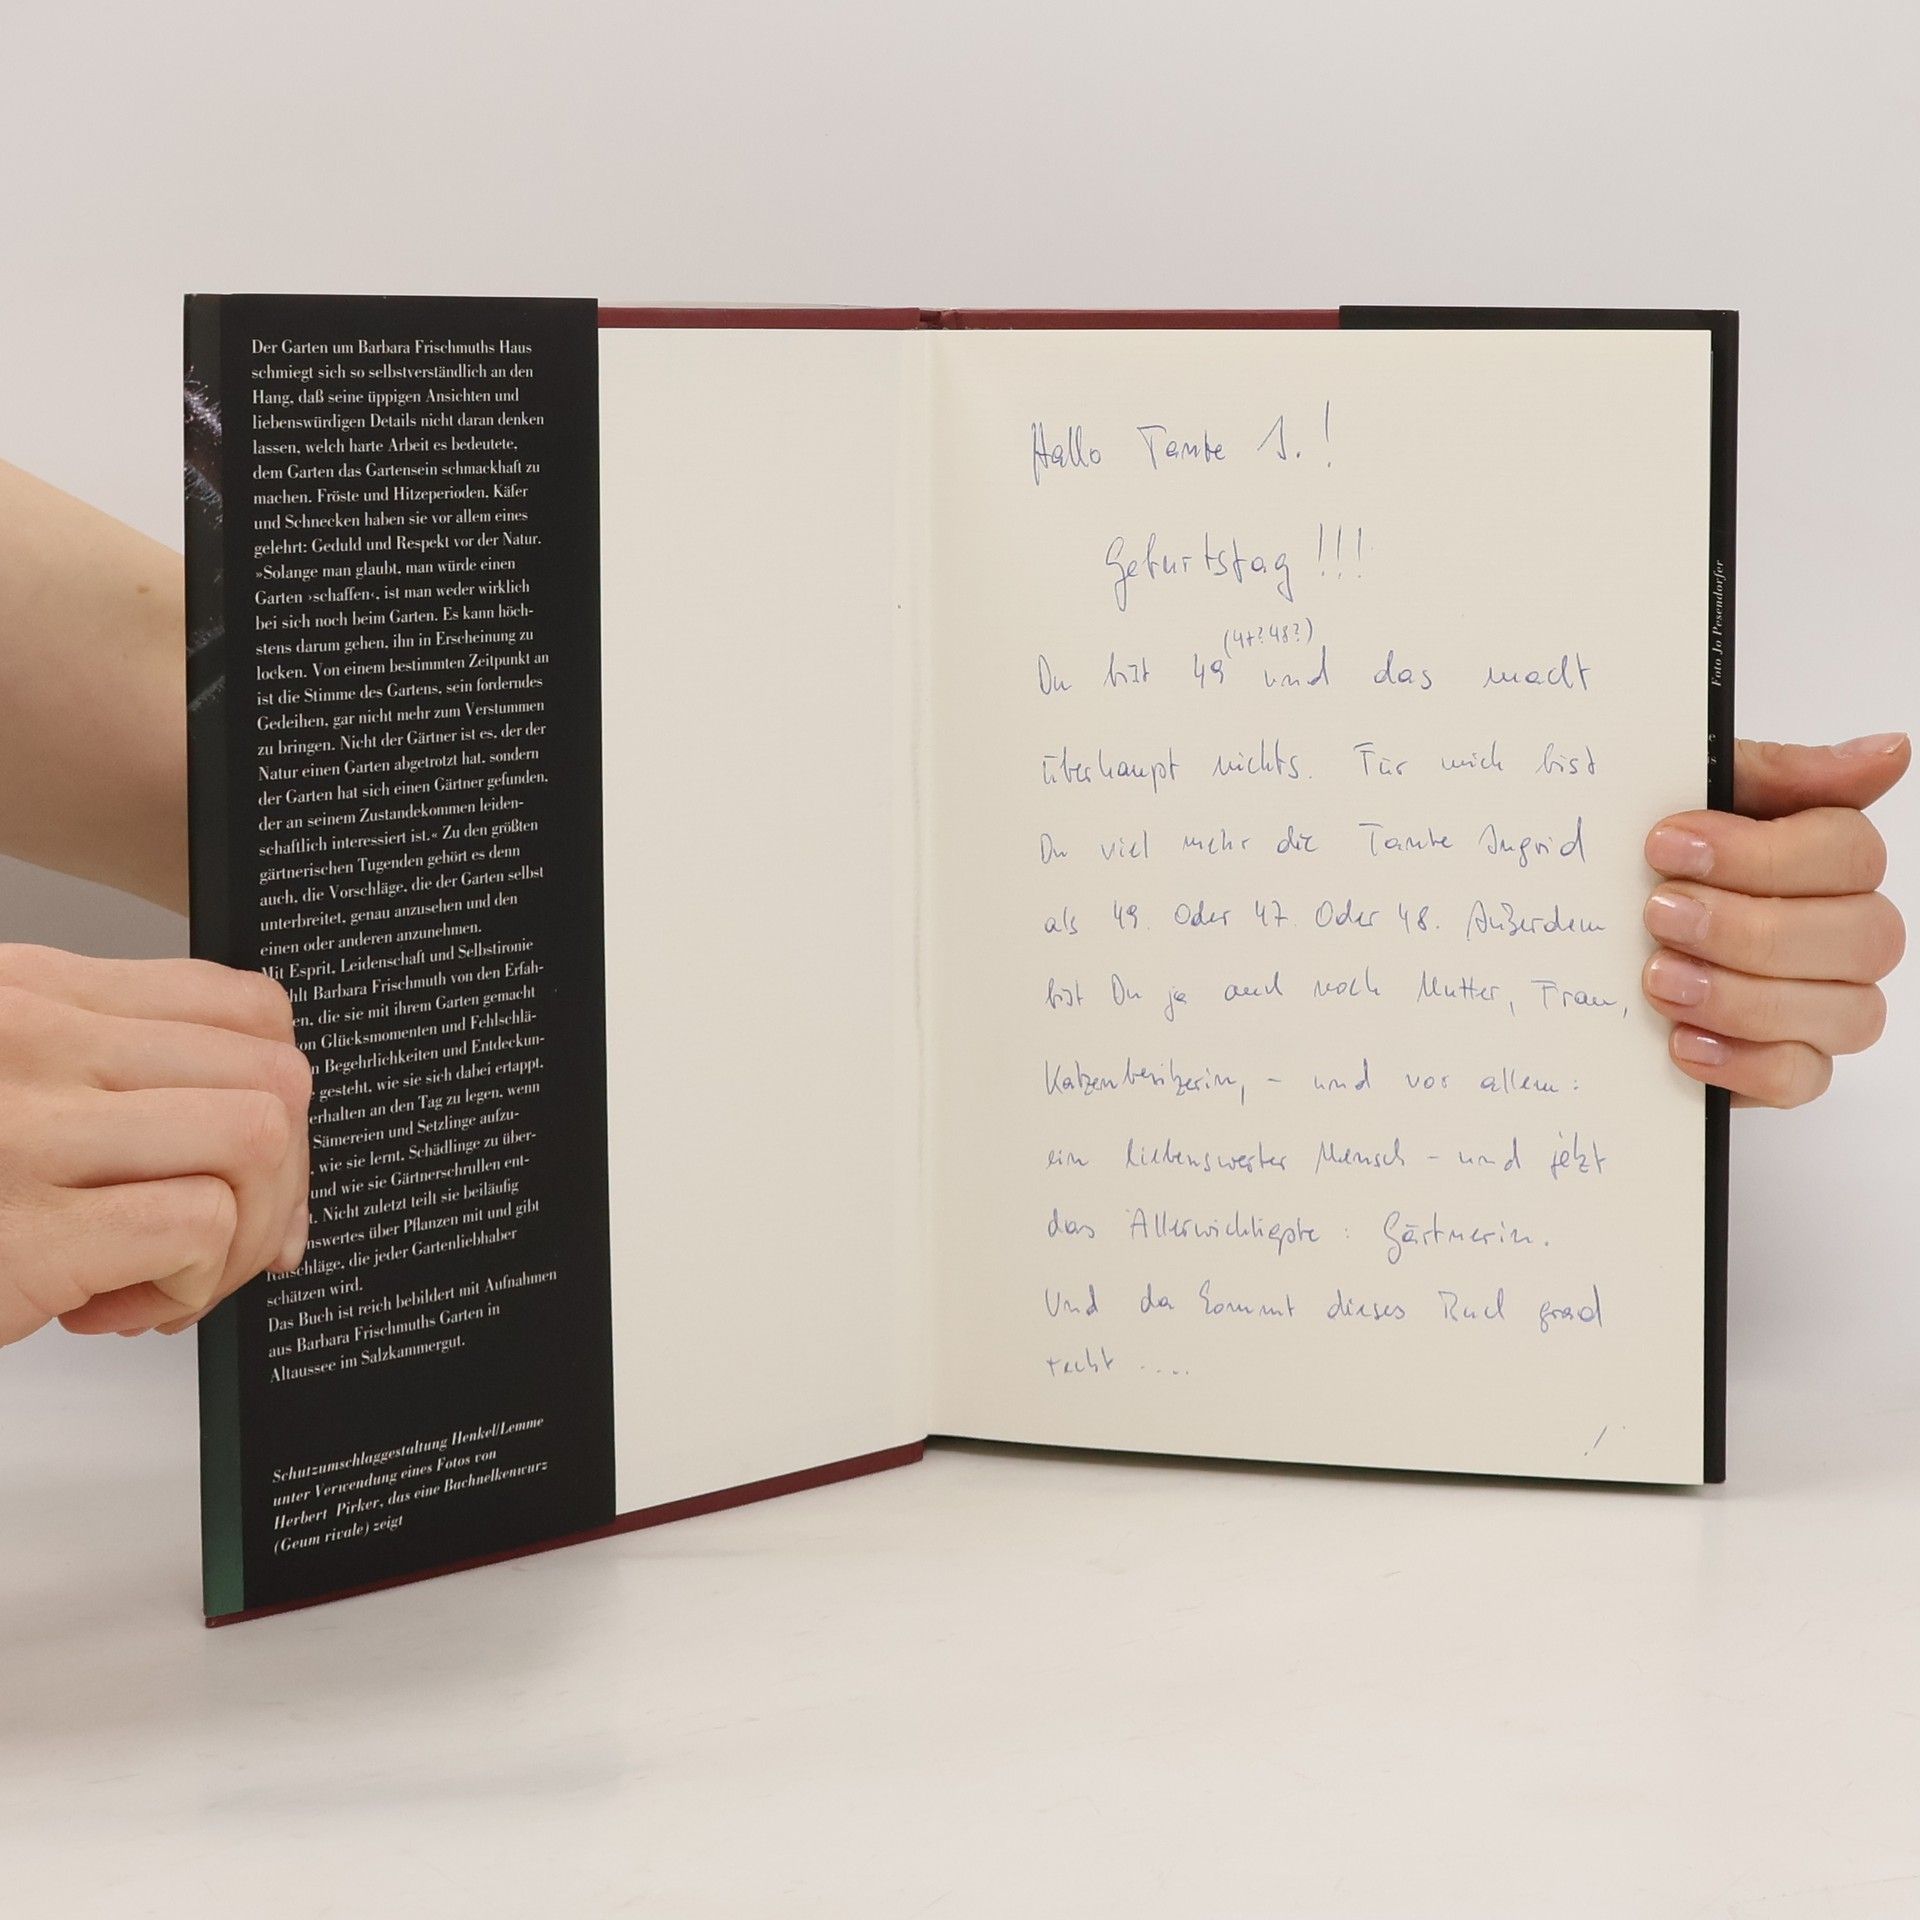 Der Garten um Barbara Frischmuths Haus
schmiegt sich so selbstverständlich an den
Hang, daß seine üppigen Ansichten und
liebenswürdigen Details nicht daran denken
lassen, welch harte Arbeit es bedeutete,
dem Garten das Gartensein schmackhaft zu
machen. Fröste und Hitzeperioden, Käfer
und Schnecken haben sie vor allem eines
gelehrt: Geduld und Respekt vor der Natur.
»Solange man glaubt, man würde einen
Garten ›schaffen‹, ist man weder wirklich
bei sich noch beim Garten. Es kann höch-
stens darum gehen, ihn in Erscheinung zu
locken. Von einem bestimmten Zeitpunkt an
ist die Stimme des Gartens, sein forderndes
Gedeihen, gar nicht mehr zum Verstummen
zu bringen. Nicht der Gärtner ist es, der der
Natur einen Garten abgetrotzt hat, sondern
der Garten hat sich einen Gärtner gefunden,
der an seinem Zustandekommen leiden-
schaftlich interessiert ist.« Zu den größten
gärtnerischen Tugenden gehört es denn
auch, die Vorschläge, die der Garten selbst
unterbreitet, genau anzusehen und den
einen oder anderen anzunehmen.
Mit Esprit, Leidenschaft und Selbstironie
hlt Barbara Frischmuth von den Erfah-
en, die sie mit ihrem Garten gemacht
on Glücksmomenten und Fehlschlä-
n Begehrlichkeiten und Entdeckun-
gesteht, wie sie sich dabei ertappt,
erhalten an den Tag zu legen, wenn
Sämereien und Setzlinge aufzu-
, wie sie lernt, Schädlinge zu über-
und wie sie Gärtnerschrullen ent-
t. Nicht zuletzt teilt sie beiläufig
nswertes über Pflanzen mit und gibt
Ratschläge, die jeder Gartenliebhaber
schätzen wird.
Das Buch ist reich bebildert mit Aufnahmen
aus Barbara Frischmuths Garten in
Altaussee im Salzkammergut.
Schutzumschlaggestaltung Henkel/Lemme
unter Verwendung eines Fotos von
Herbert Pirker, das eine Bachnelkenwurz
(Geum rivale) zeigt
Hallo Tante I.!
Geburtstag!!!
(47? 48?)
Du bist 49 und das macht
überhaupt nichts. Für mich bist
Du viel mehr die Tante Ingrid
als 49. Oder 47. Oder 48. Außerdem
bist Du ja auch noch Mutter, Frau,
Katzenbesitzerin, - und vor allem:
ein liebenswerter Mensch - und jetzt
das Allerwichtigste: Gärtnerin.
Und da kommt dieses Buch grad
recht ....
!
Foto Jo Pesendorfer